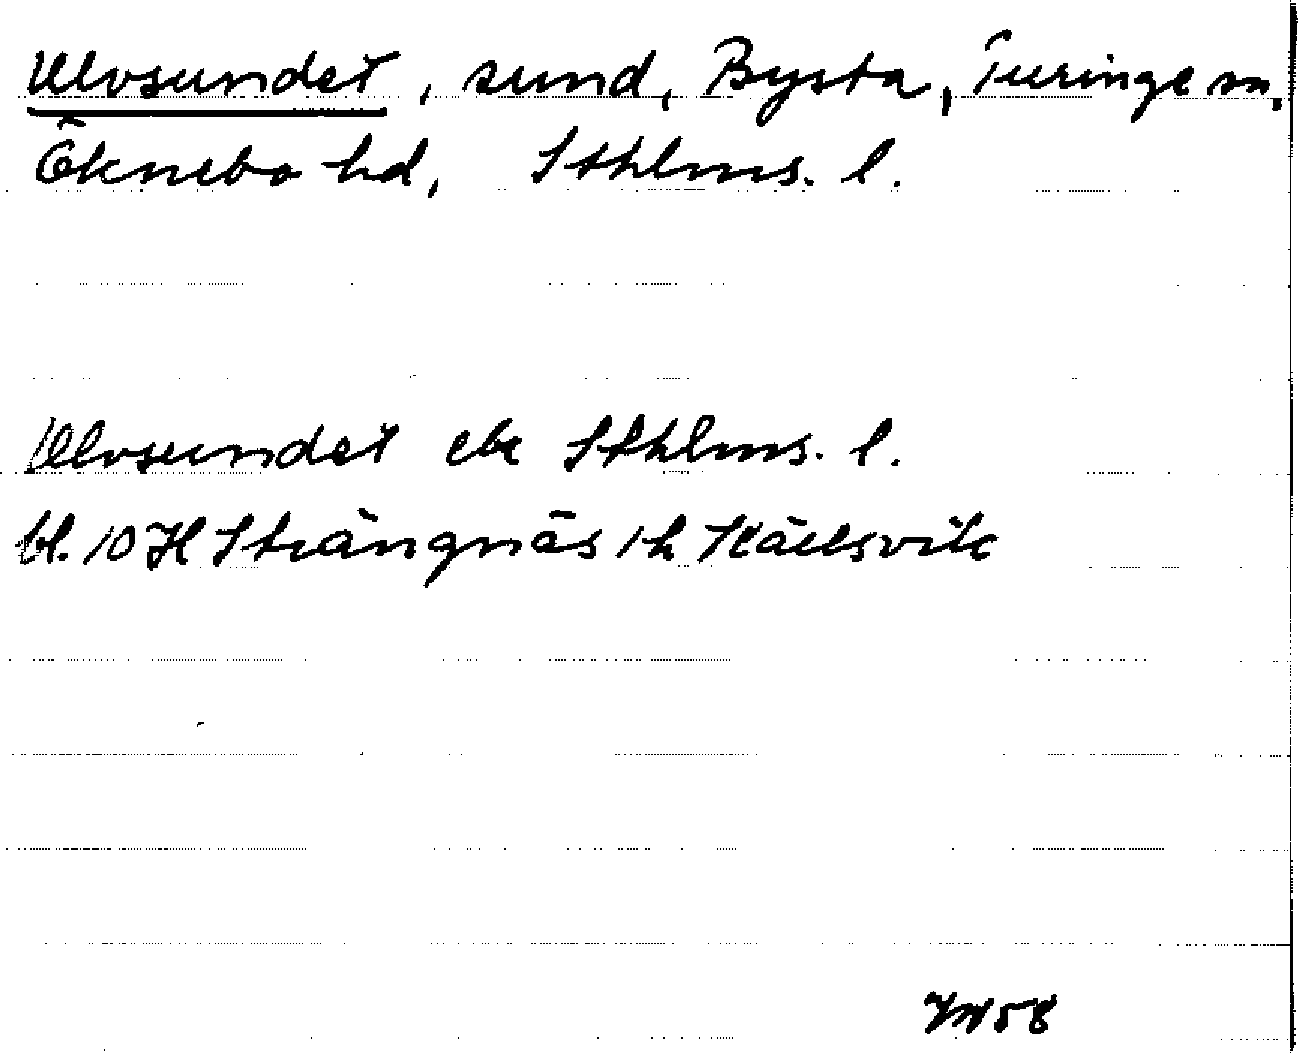 Ulvsundet, sund, Bysta, Turinge sn,
Öknebo hd, Sthlms. l.
Ulvsundet ek Sthlms. l.
bl. 10 H Strängnäs 1h
58